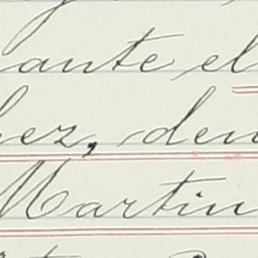 ante el
hez, den
Martin